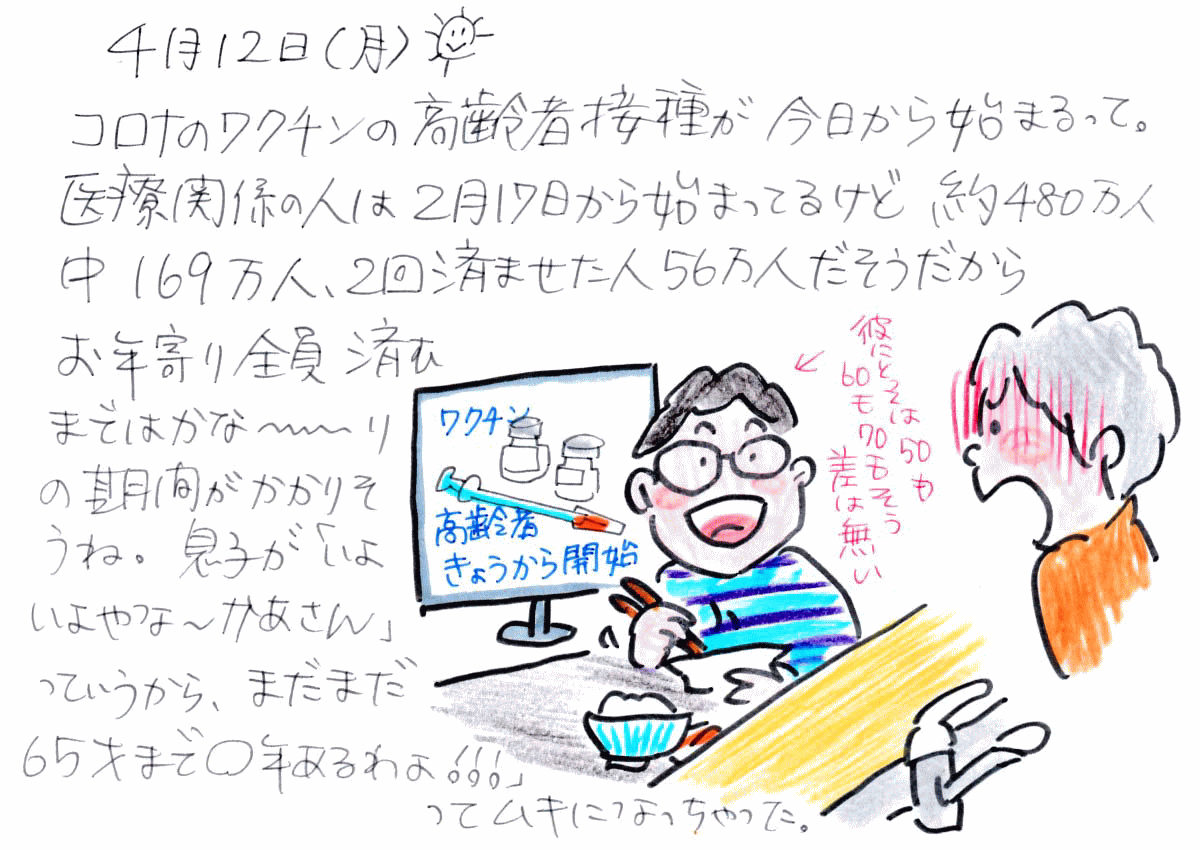 4月12日(月)
コロナのワクチンの高齢者接種が今日から始まるって。
医療関係の人は2月17日から始まってるけど約480万人
中169万人、2回済ませた人56万人だそうだから
お年寄り全員済む
まではかな〜〜〜り
の期間がかかりそ
うね。息子が「いよ
いよやな〜かあさん」
っていうから、まだまだ
65才まで〇年あるわよ!!!」
ってムキになっちゃった。
ワクチン
高齢者
きょうから開始
彼にとっては50も
60も70もそう
差は無い